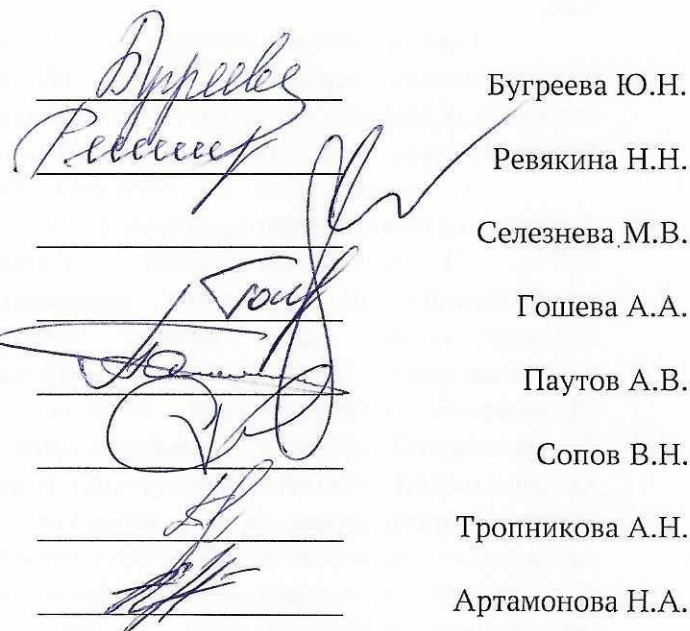 Бугреева Бугреева Ю.Н.
Ревякина Н.Н.
Селезнева М.В.
Гошева А.А.
Паутов А.В.
Сопов В.Н.
Тропникова А.Н.
Артамонова Н.А.